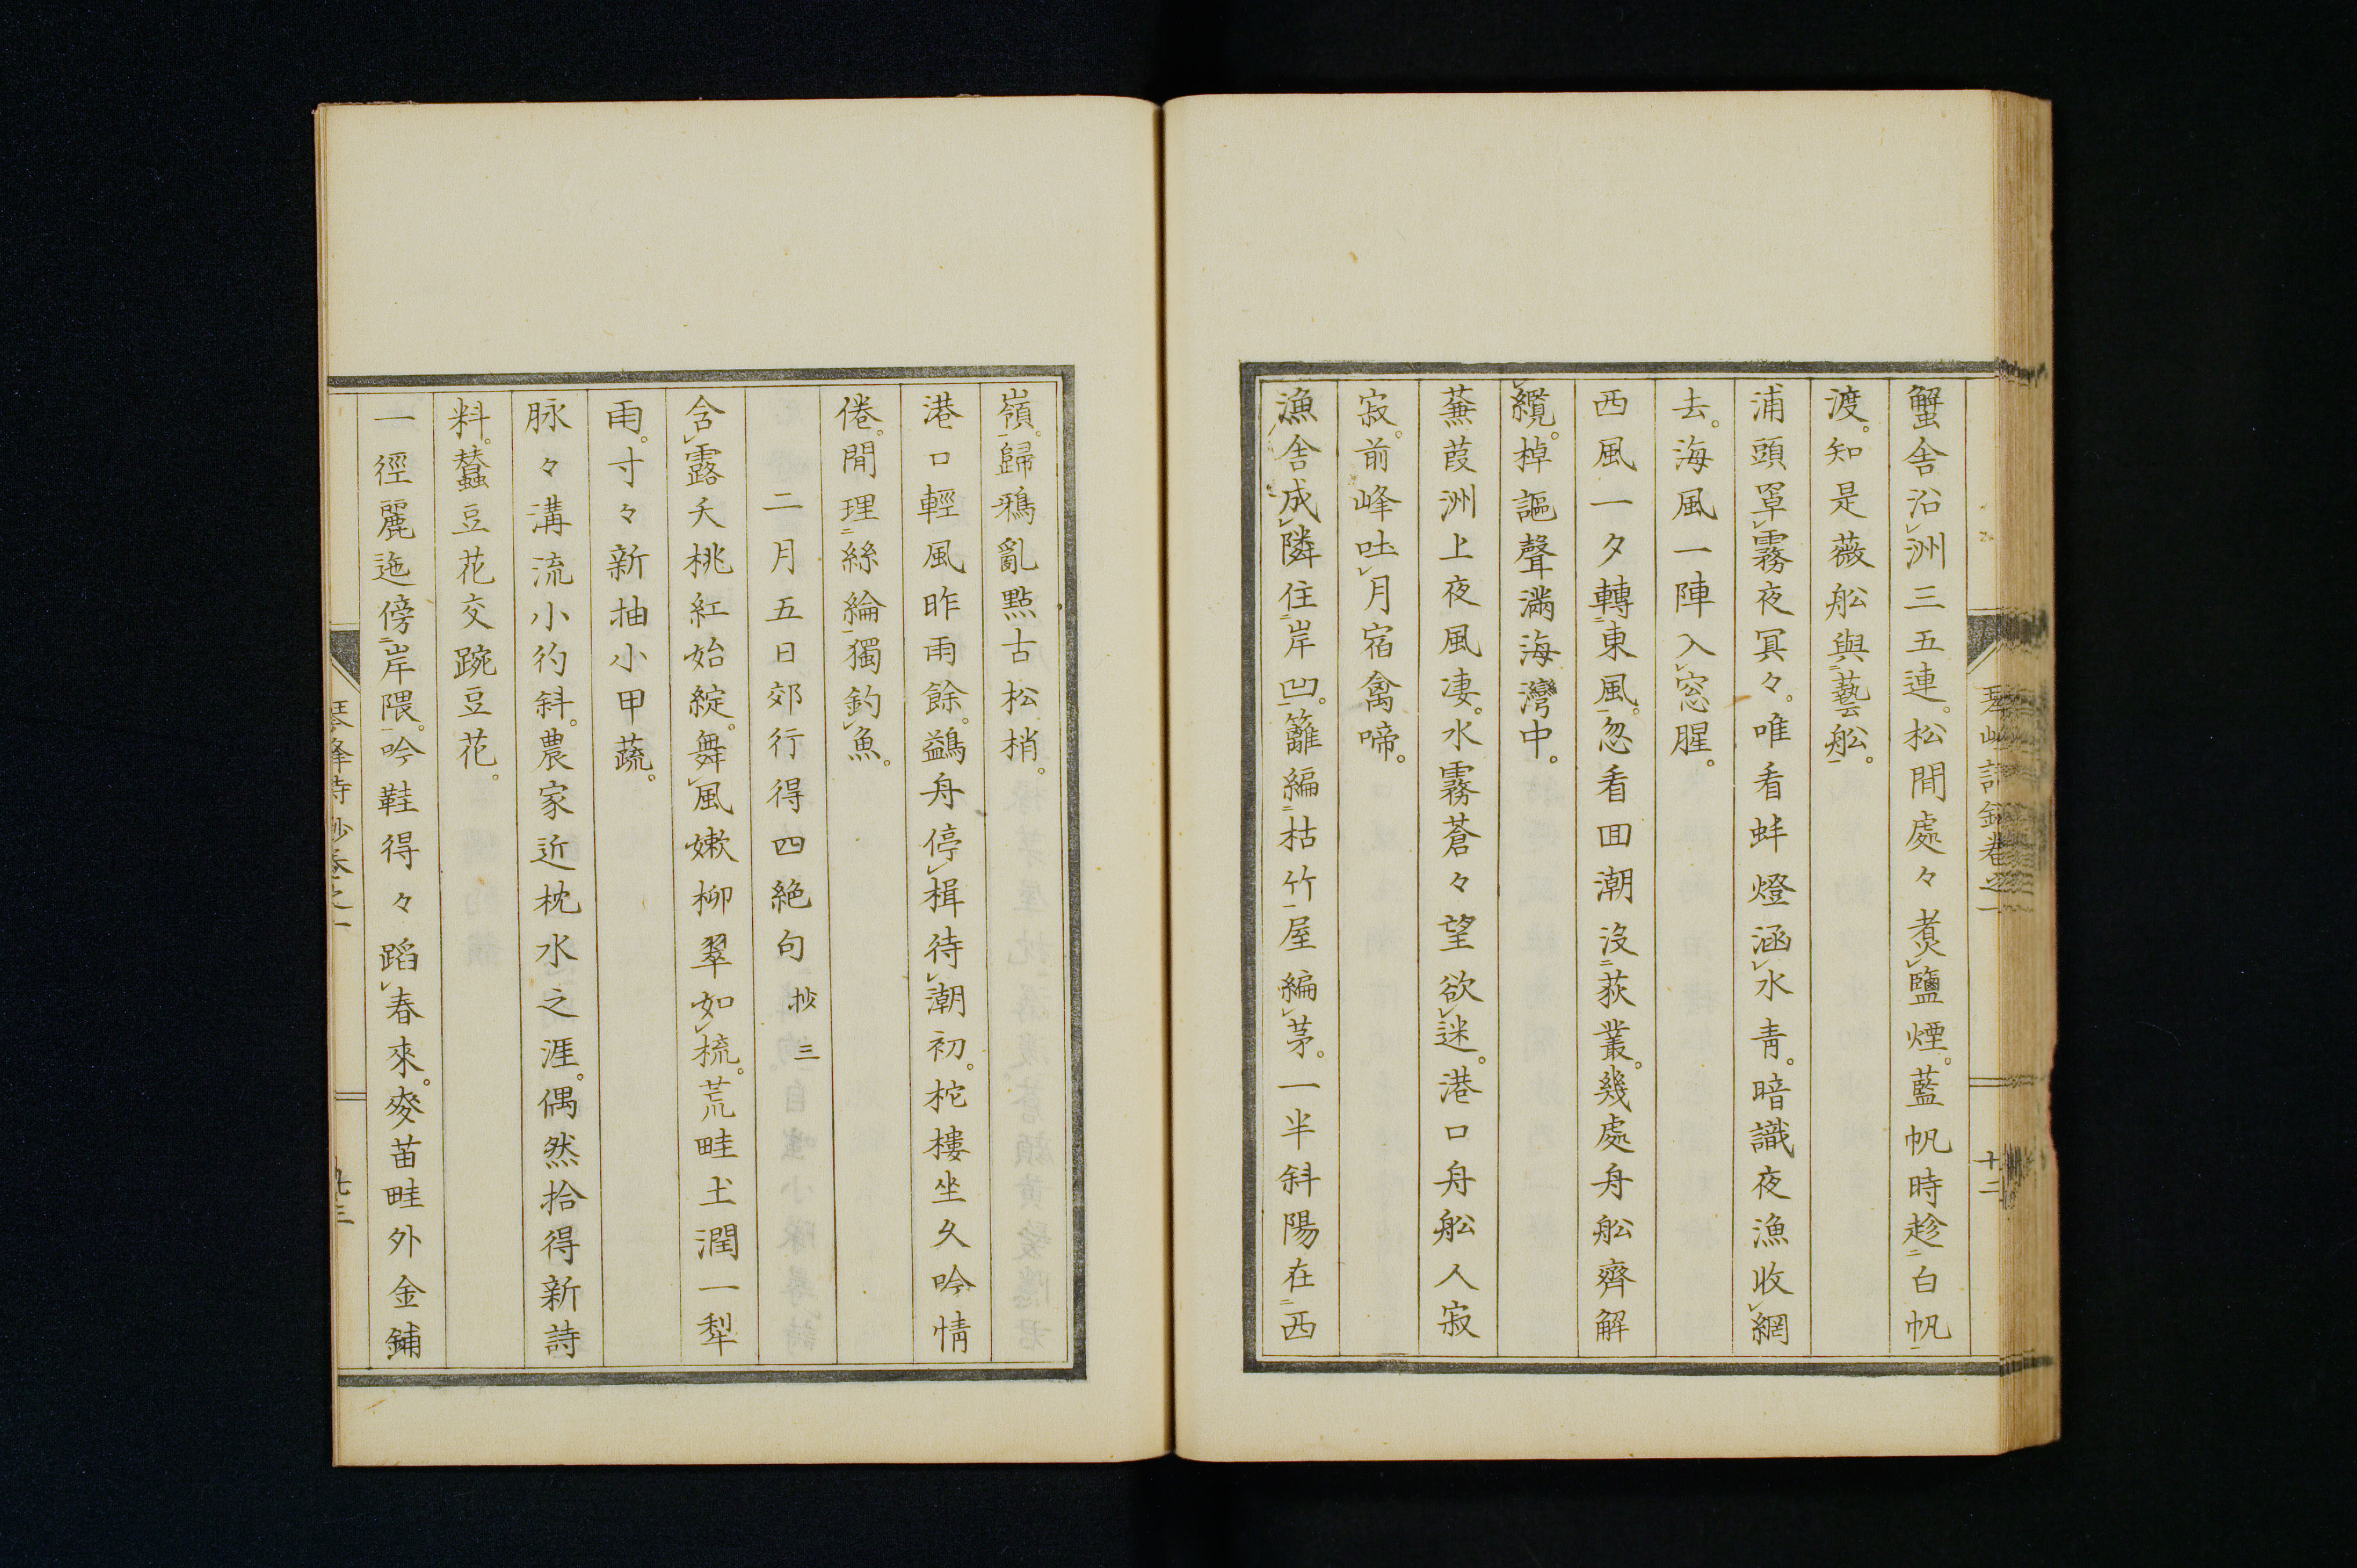 蟹舎沿洲三五連。松間處々煮鹽煙。藍帆時趁白帆
渡。知是薇舩與藝舩。
浦頭罩霧夜冥々。唯看蚌燈涵水青。暗識夜漁收網
去。海風一陣入窓腥。
西風一夕轉東風。忽看囬潮沒荻叢。幾處舟舩齊解
纜。棹謳聲滿海灣中。
蒹葭洲上夜風凄。水霧蒼々望欲迷。港口舟舩人寂
寂。前峰吐月宿禽啼。
漁舎成隣住岸凹。籬編枯竹屋編茅。一半斜陽在西
嶺。歸鴉亂點古松梢。
港口輕風昨雨餘。鷁舟停楫待潮初。柁樓坐久吟情
倦。閒理絲綸獨釣魚。
二月五日郊行得四絶句 抄三
含露夭桃紅始綻。舞風嫩柳翠如梳。荒畦土潤一犁
雨。寸々新抽小甲蔬。
脉々溝流小彴斜。農家近枕水之涯。偶然拾得新詩
料。蠶豆花交豌豆花。
一徑麗迤傍岸隈。吟鞋得々蹈春來。麥苗畦外金鋪